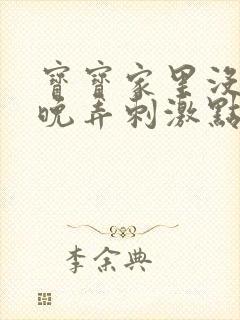 寶寶家里沒
晚弄刺激點
李余典